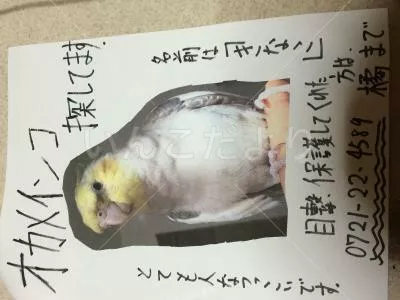 オカメインコ
探してます。
名前は「きなこ」
とても人なつっこいです。
目撃、保護してくれた
方は、
0721-22-4589
橘まで
いんこだより